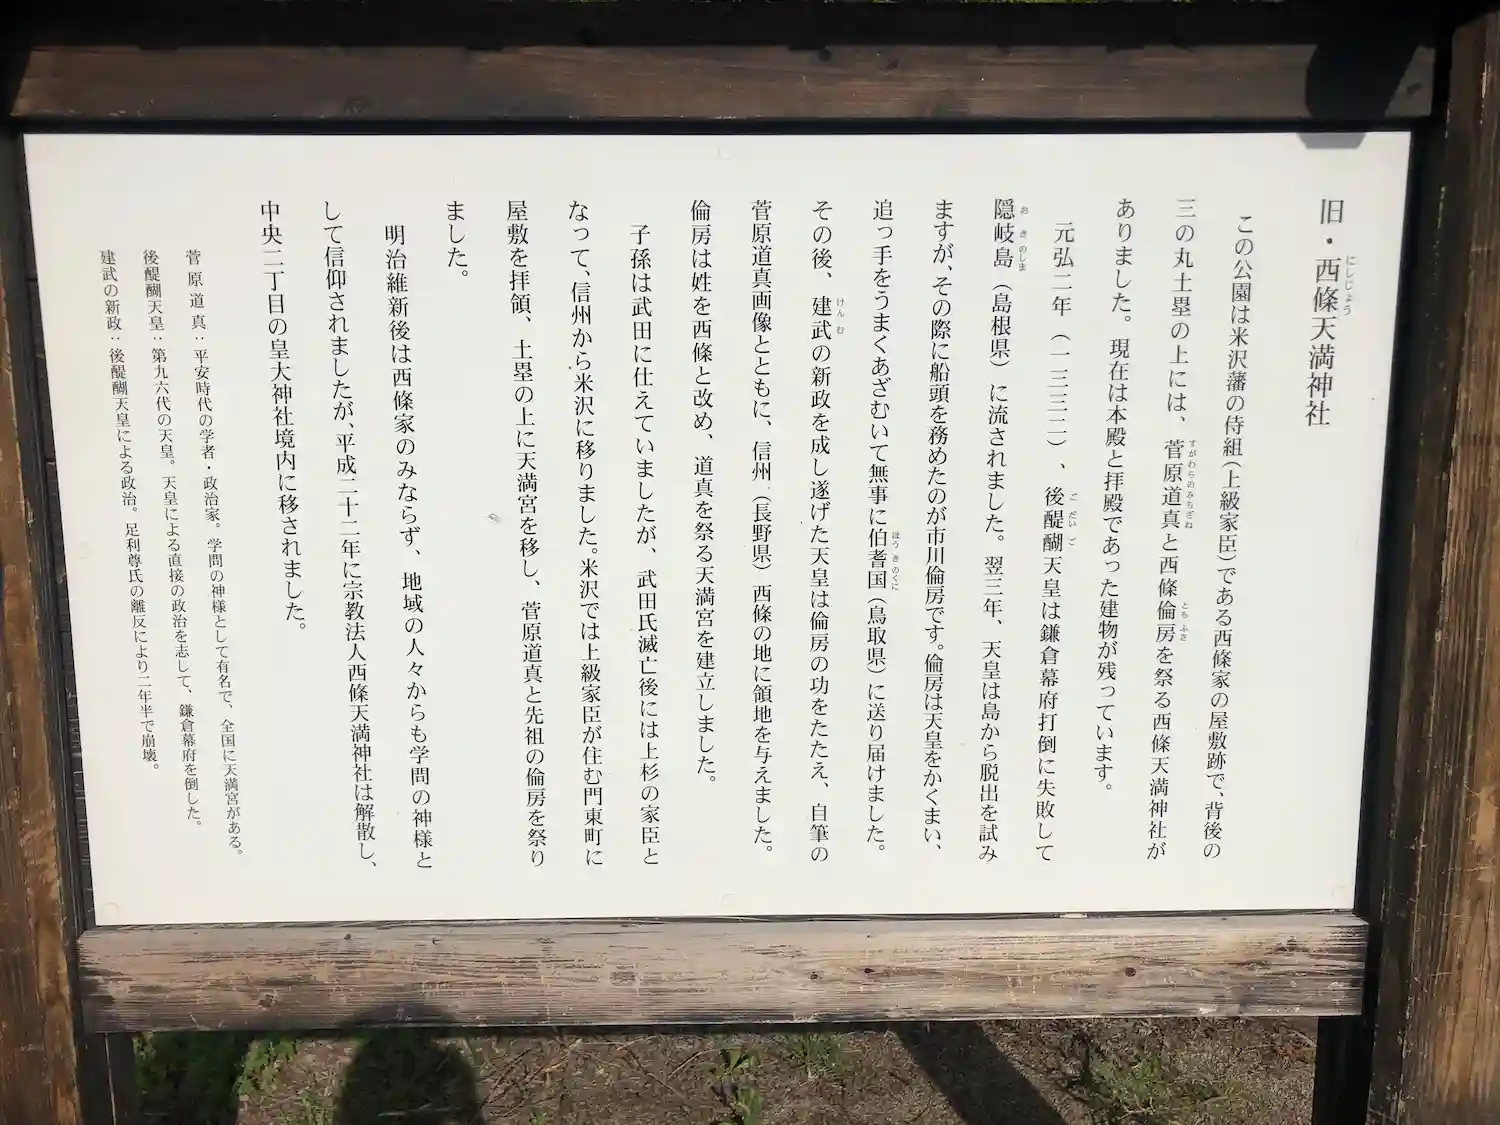 旧・西條天満神社
この公園は米沢藩の侍組（上級家臣）である西條家の屋敷跡で、背後の
三の丸土塁の上には、菅原道真と西條倫房を祭る西條天満神社が
ありました。現在は本殿と拝殿であった建物が残っています。
元弘二年（一三三二）、後醍醐天皇は鎌倉幕府打倒に失敗して
隠岐島（島根県）に流されました。翌三年、天皇は島から脱出を試み
ますが、その際に船頭を務めたのが市川倫房です。倫房は天皇をかくまい、
追っ手をうまくあざむいて無事に伯耆国（鳥取県）に送り届けました。
その後、建武の新政を成し遂げた天皇は倫房の功をたたえ、自筆の
菅原道真画像とともに、信州（長野県）西條の地に領地を与えました。
倫房は姓を西條と改め、道真を祭る天満宮を建立しました。
子孫は武田に仕えていましたが、武田氏滅亡後には上杉の家臣と
なって、信州から米沢に移りました。米沢では上級家臣が住む門東町に
屋敷を拝領、土塁の上に天満宮を移し、菅原道真と先祖の倫房を祭り
ました。
明治維新後は西條家のみならず、地域の人々からも学問の神様と
して信仰されましたが、平成二十二年に宗教法人西條天満神社は解散し、
中央二丁目の皇大神社境内に移されました。
菅原道真：平安時代の学者・政治家。学問の神様として有名で、全国に天満宮がある。
後醍醐天皇：第九六代の天皇。天皇による直接の政治を志して、鎌倉幕府を倒した。
建武の新政：後醍醐天皇による政治。足利尊氏の離反により二年半で崩壊。